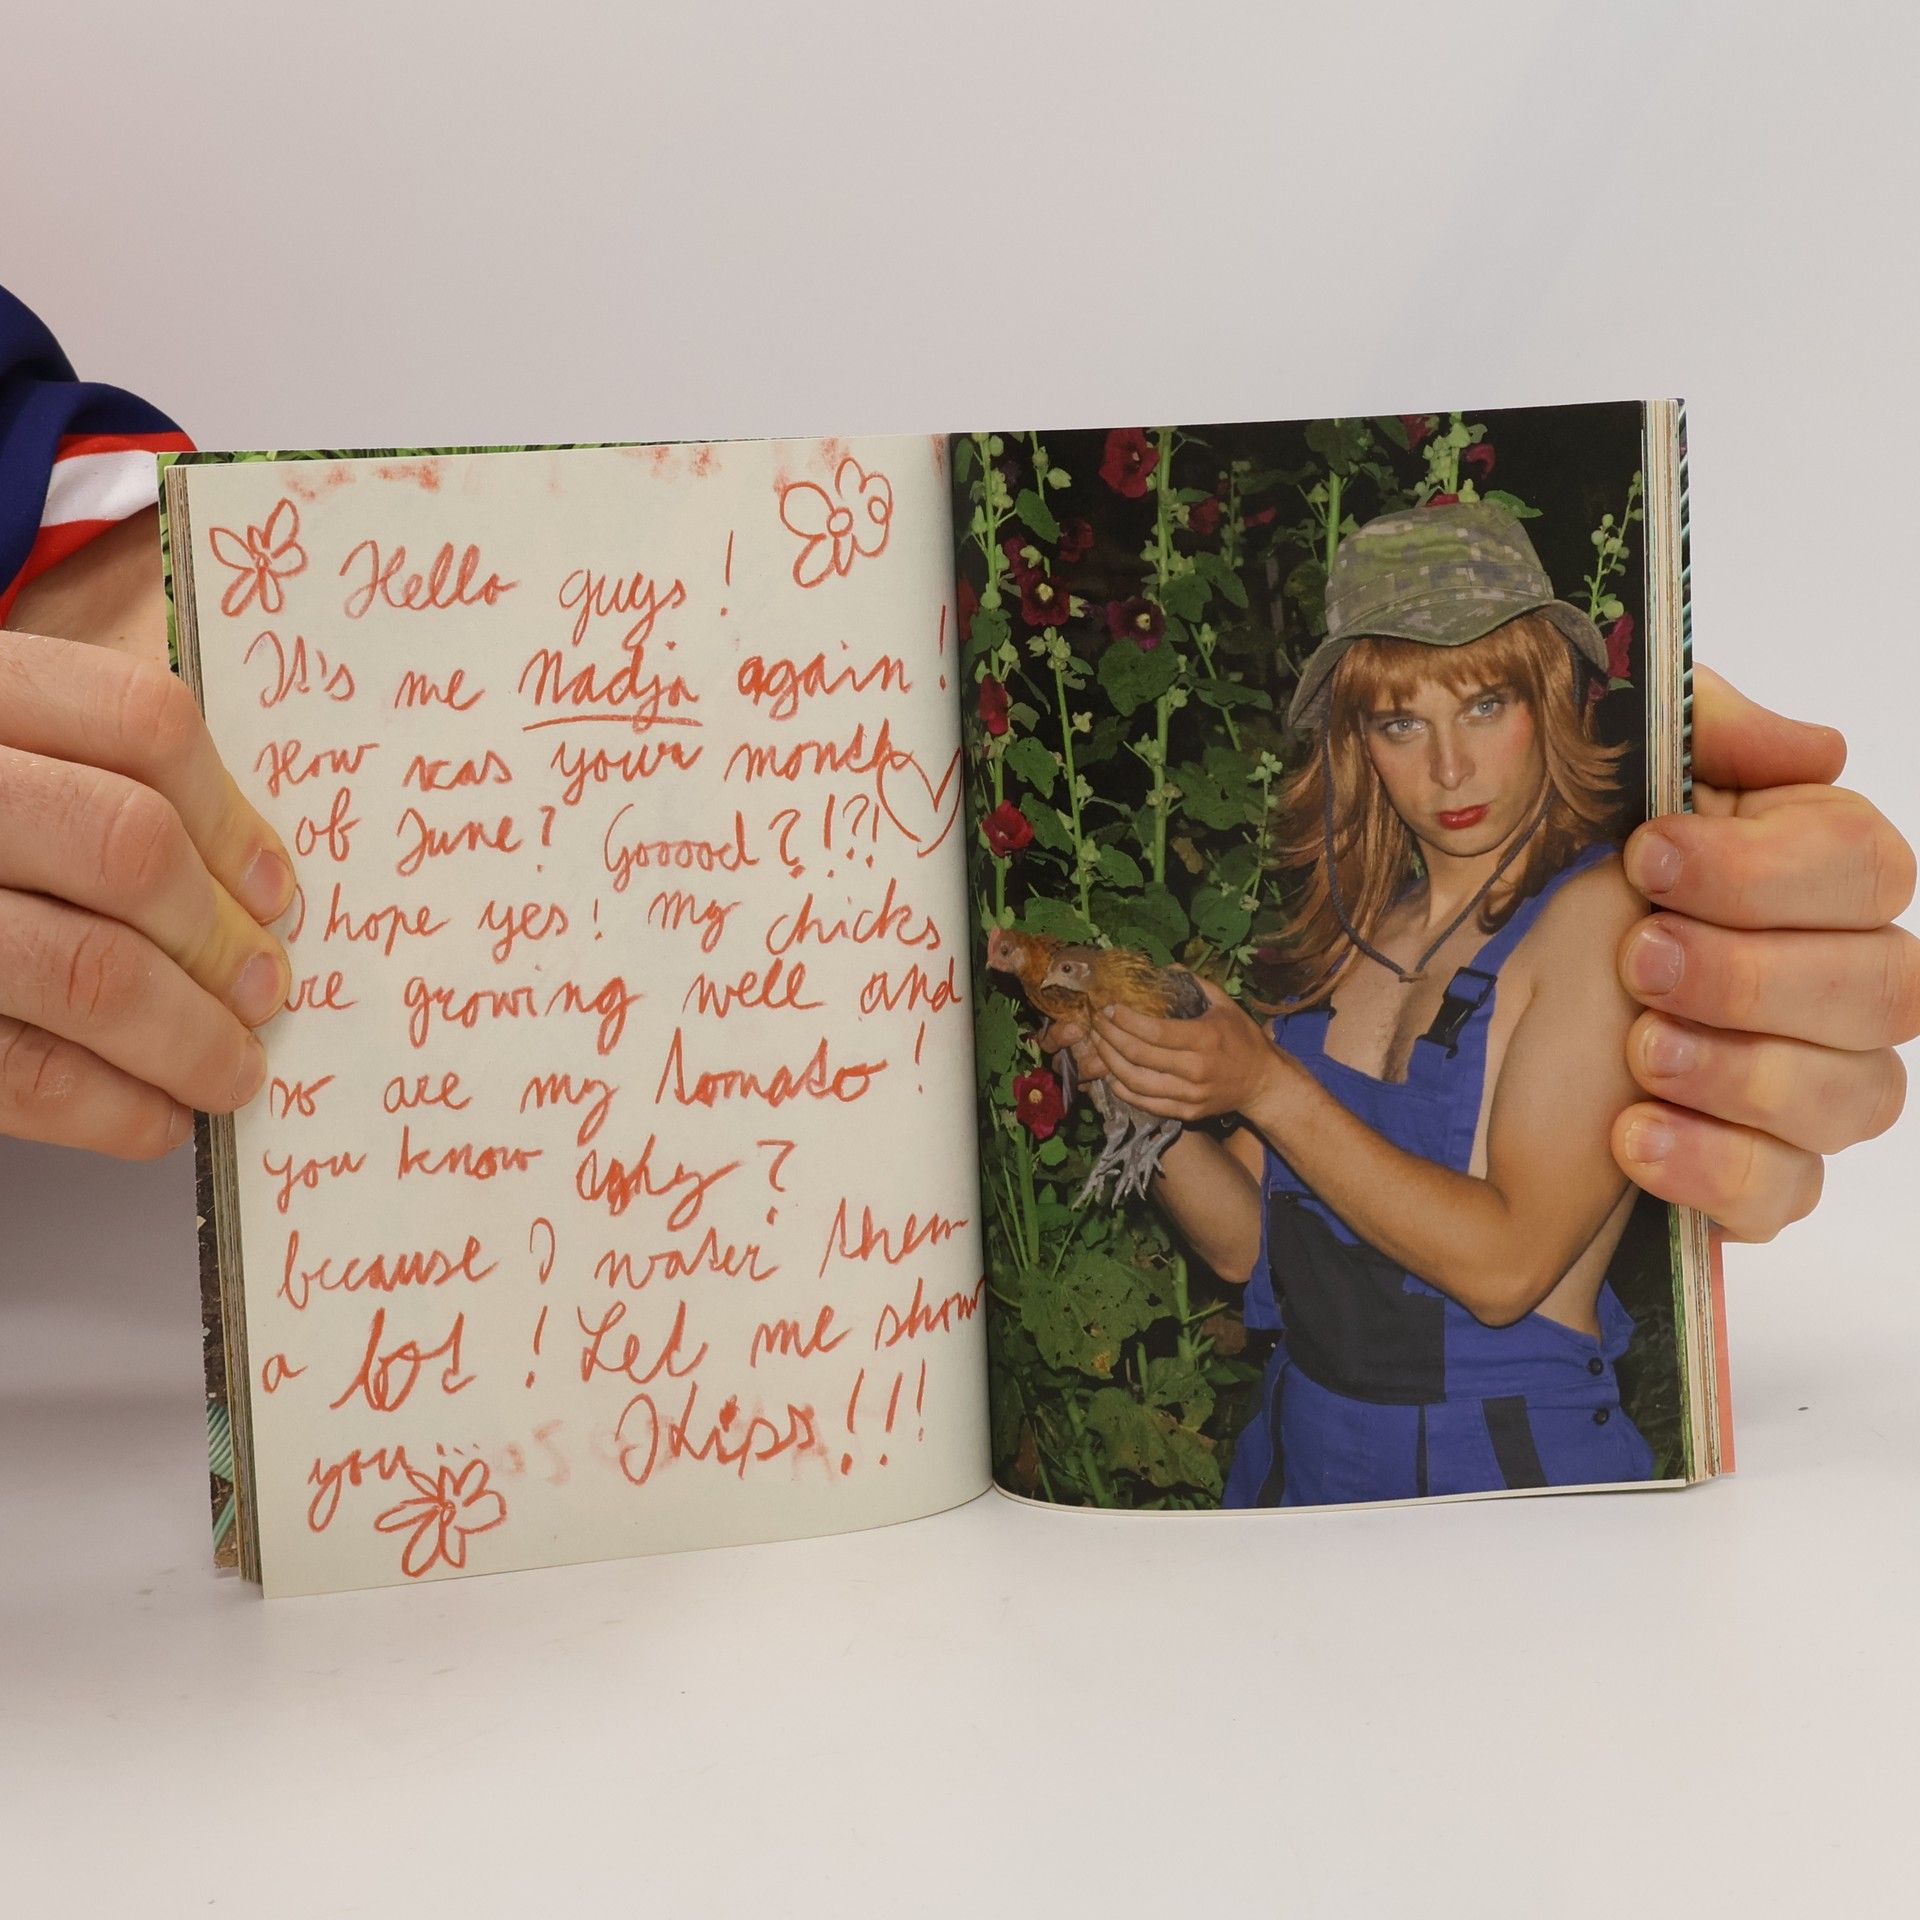 Hello guys!
It's me Nadja again!
How was your month
of June? Gooood?!?!
I hope yes! My chicks
are growing well and
so are my tomato!
you know why?
because I water them
a lot! Let me show
you... Kiss!!!